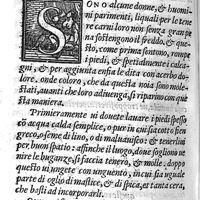 SONO alcune donne, & huomi-
ni parimenti, liquali per le tene
re carni loro non senza gran pe
na sostengono il freddo, & que-
sto, come prima sentono, rompe
i piedi, & spetidmente i calca-
gni, & per aggiunta enfia le dita con acerbo do-
lore, onde coloro, che da questa noia sono mole-
stati, auanti che loro adiuenga, si riparino con que
sta maniera.
Primieramente ui douete lauare i piedi spesso
cō acqua calda semplice, o pur in cui sia cotto fien
greco, & seme di lino, o di maluauisco, & tenerli
per buon spatio: affinche il luogo, doue sogliono
nire le buganze, si faccia tenero, & molle: doppo
questo ui ungete con unguento, in cui sia ugual
parte di oglio di mastice, & di spica, et tanta cera,
che basti ad incorporarli.